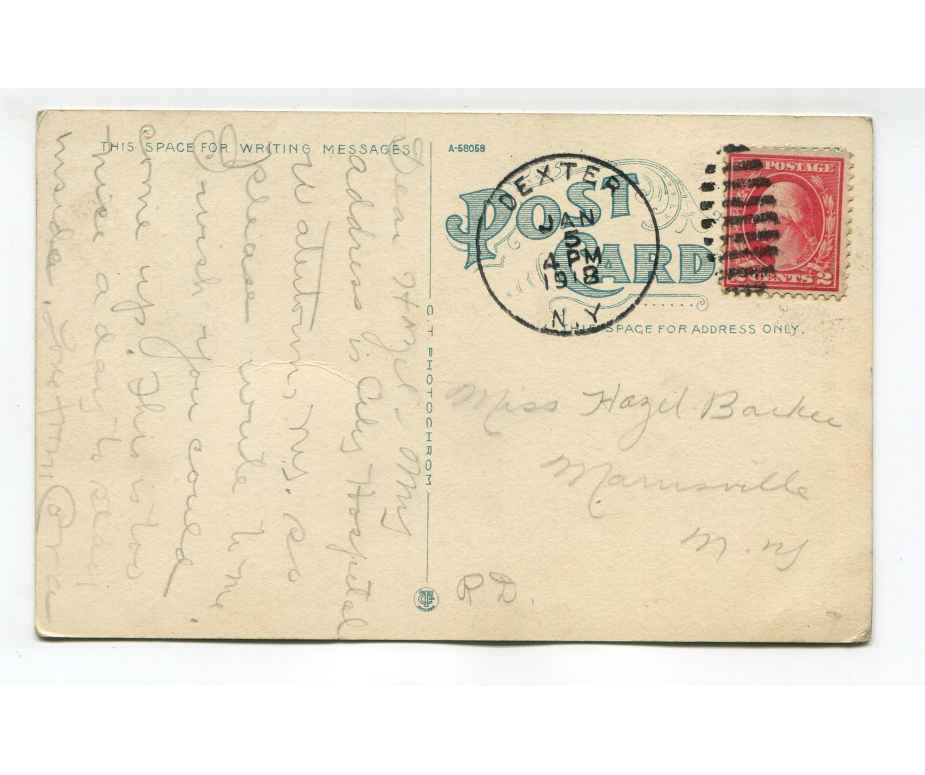 THIS SPACE FOR WRITING MESSAGES
A-58058
POST CARD
DEXTER
JAN
5
4 PM
1918
N.Y.
POSTAGE
2 CENTS 2
THIS SPACE FOR ADDRESS ONLY.
C T PHOTOCHROM
Dear Hazel - My
address is City Hospital
Watertown, N.Y. so
please write to me.
I wish you could
come up. This is too
nice a day to stay
inside.
Miss Hazel Barker
Mannsville
N. Y
R. D.